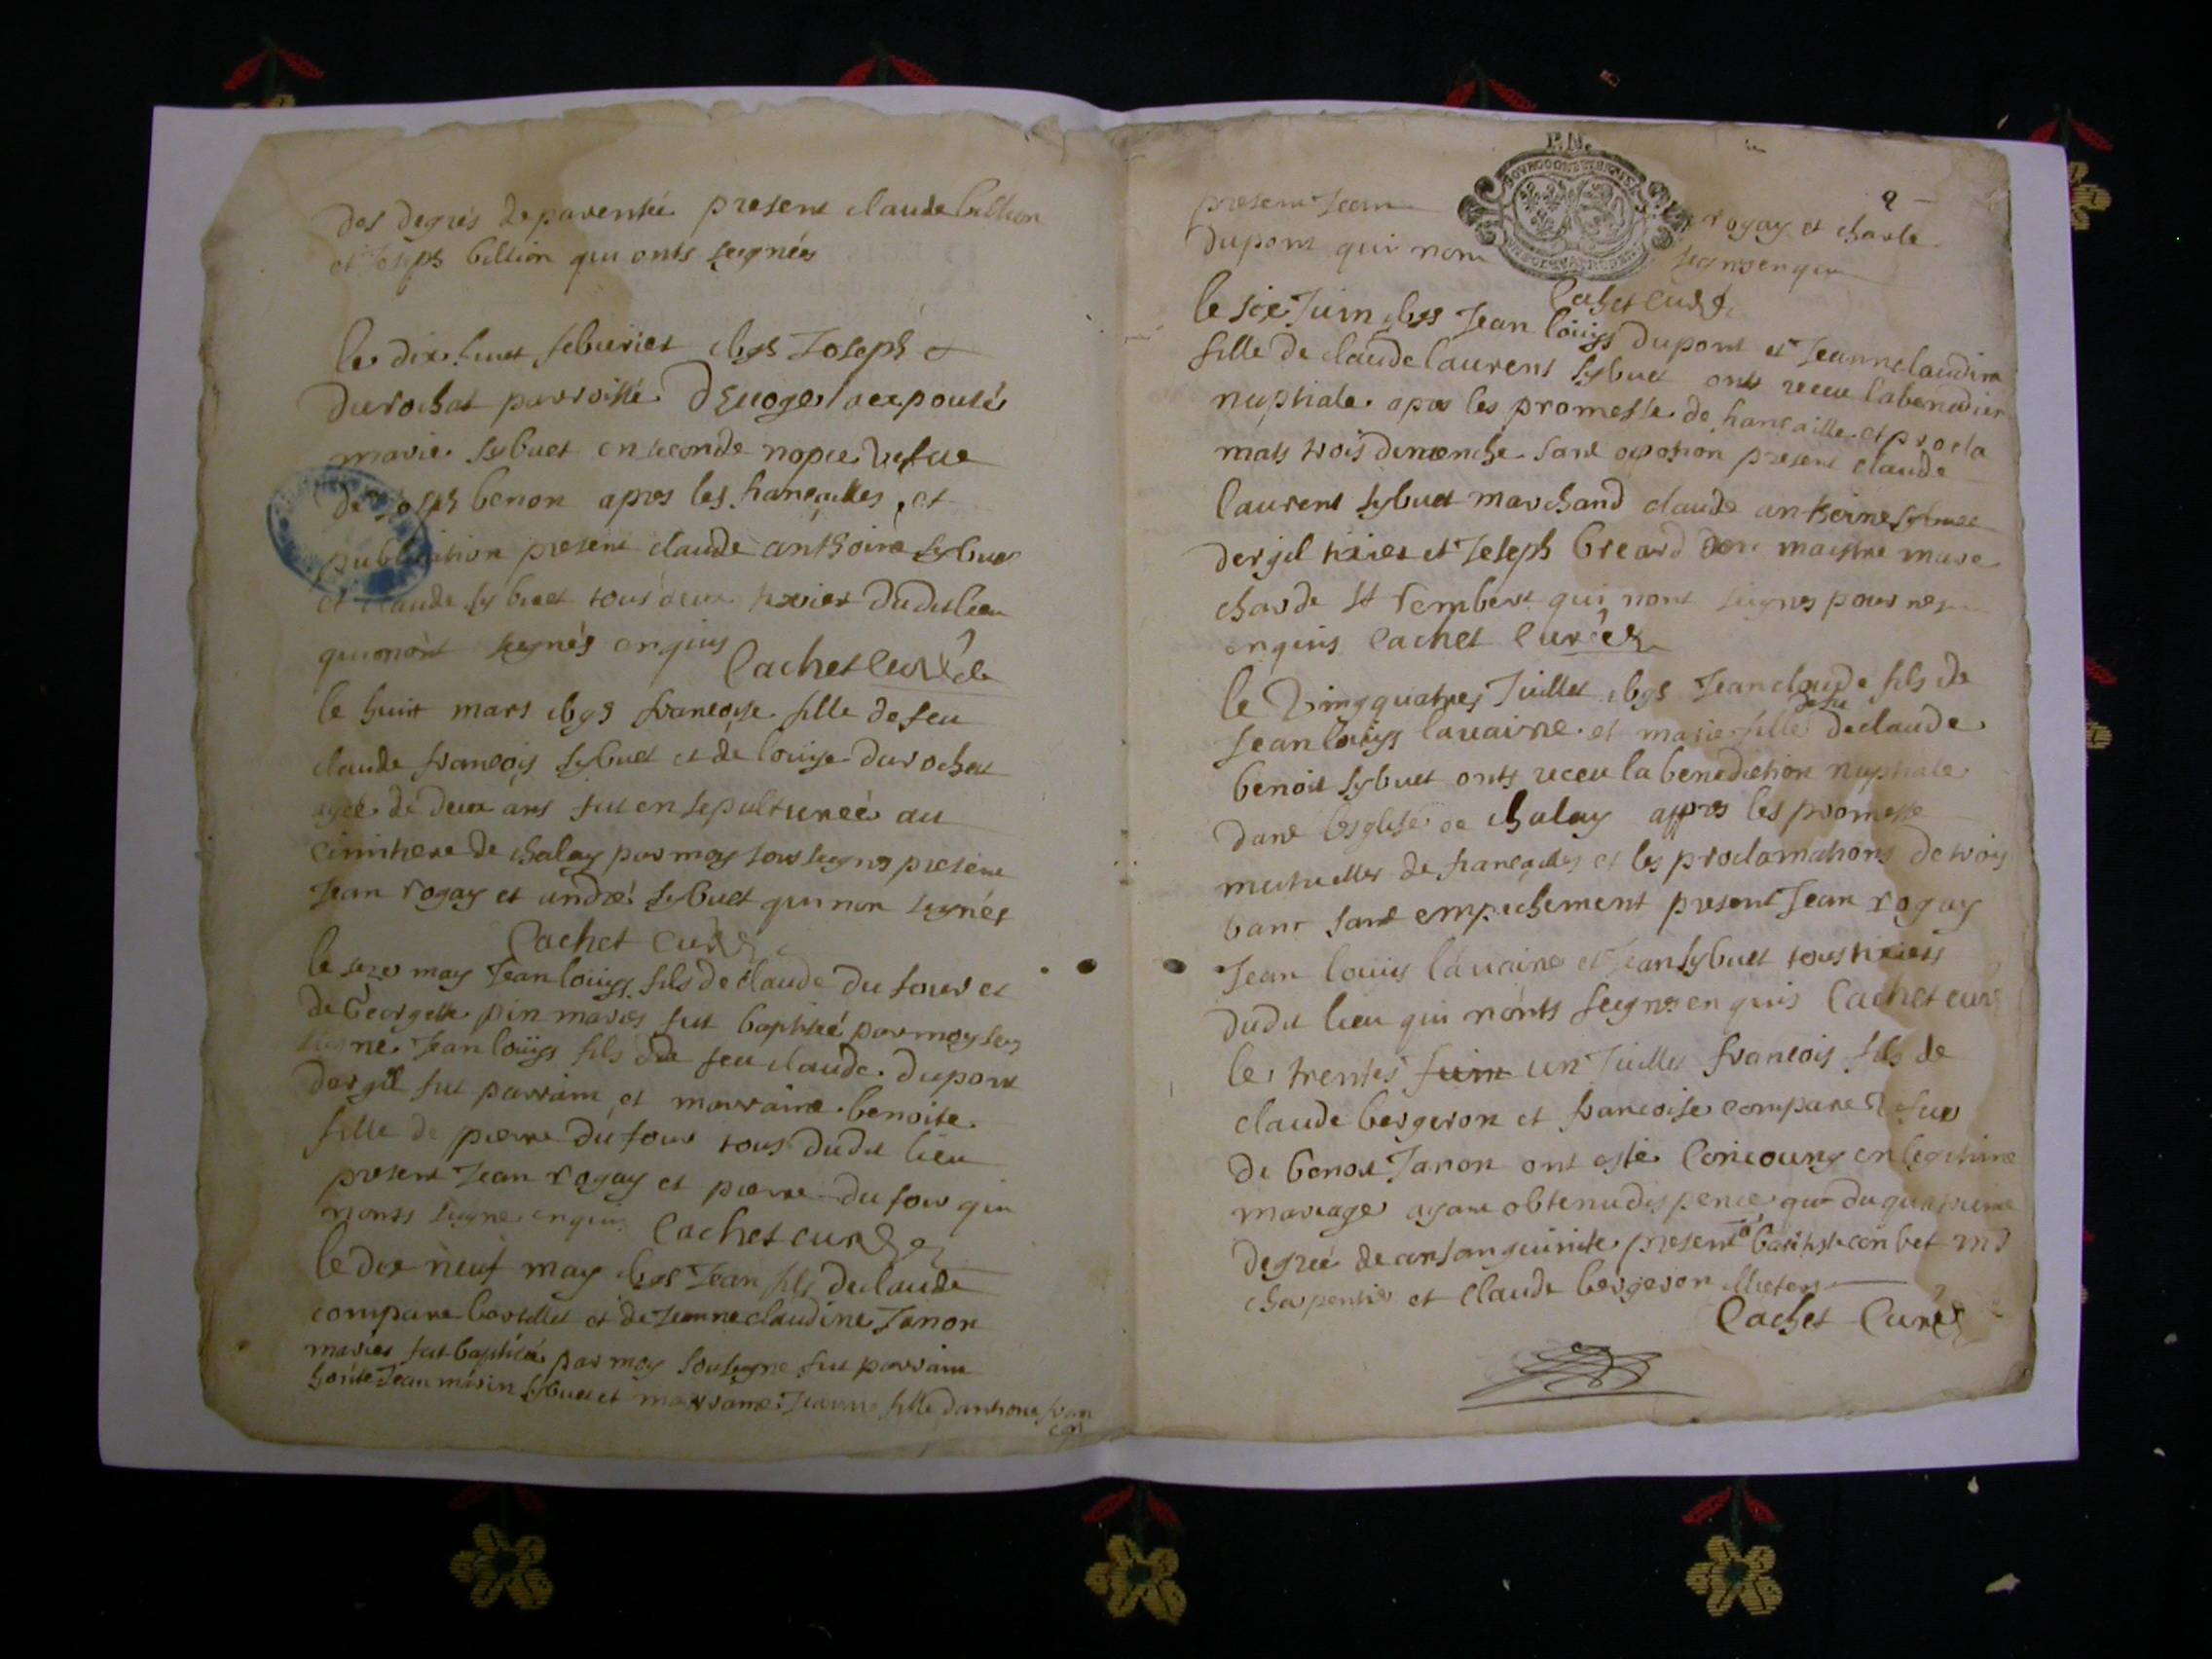 des degrés de parentée present claude billion
et Joseph billion qui onts seignés
le dix huit feburier Joseph
durochat parroisse a expousé
marie sybuet en seconde nopce vefue
de Joseph benon apres les fiançailles et
publication present claude anthoine sybuet
et claude sybuet tous deux tixier dudit lieu
qui nont seignés enquis Cachet Curé
le huit mars françoise fille de feu
claude françois sybuet et de louyse durochat
agée de deux ans fut ensepulturée au
cimitiere de chalay par moy sousseigné present
Jean rogay et andré sybuet qui non seignés
Cachet Curé
le seze may Jean louys fils de claude du four et
de Georgette pin mariés fut baptisé par moy sous
signé Jean louys fils de feu claude dupont
dergil fut parrain et marraine benoite
fille de pierre du four tous dudit lieu
present Jean rogay et pierre du four qui
nonts seigné enquis Cachet curé
le dix neuf may Jean fils de claude
compare bartellet et de Jeanne claudine Janon
mariés fut baptisé par moy sousigné fut parrain
honte Jean marin sybuet et marraine Jeanne fille danthone fran
P.N.
2
present Jean rogay et charle
dupont qui nont
Cachet curé
le six Juin Jean louys dupont et Jeanne claudine
fille de claude laurent sybuet onts receu la benedier
nuptiale apres les promesse de fiançaille et procla
mats trois dimenche sant oposion present claude
laurent sybuet marchand claude anthoine sybuet
dergil tixier et Joseph breard maystre mare
char de St rembert qui nont seignes pour
enquis Cachet Curé
le vingquatres Juillet Jean claude fils de
Jean louys lauaine et marie fille de feu de claude
benoit sybuet onts receu la benediction nuptiale
dans lesglise de chalay appres les promesse
mutuelles de fiançailles et les proclamations de trois
bant sant empechement present Jean rogay
Jean louys lauraine et Jean sybuet tous tixiers
dudit lieu qui nonts seignes enquis Cachet curé
le trentes juin un Juillet françois fils de
claude bergeron et françoise compare
de benoit Janon ont esté en legitime
mariage ayant obtenu dispence du quatrieme
degrée de consanguinite present
charpentier et claude bergeron
Cachet Curé